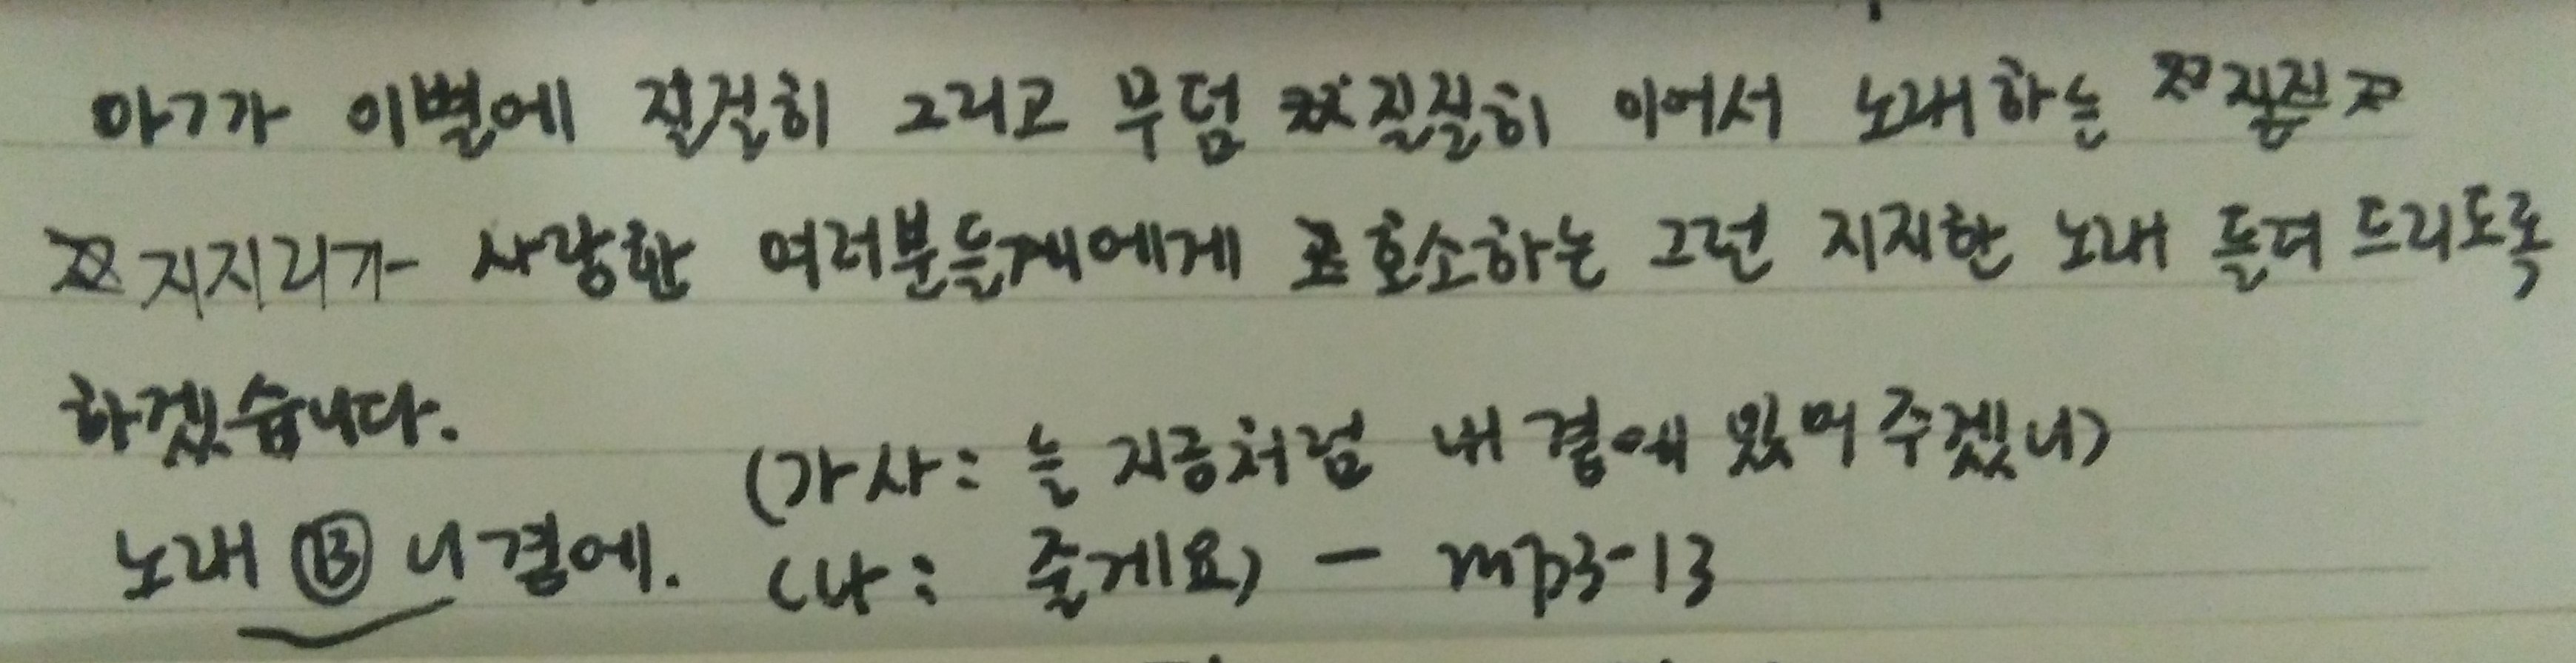 아가가 이별에 절절히 그리고 무덤 질질히 이어서 노래하는
지지리가 사랑한 여러분들께에게 호소하는 그런 지지한 노래 들려 드리도록
하겠습니다.
(가사: 늘 지금처럼 내 곁에 있어 주겠니)
노래 ⑬ 니 곁에. (나: 줄게요) - mp3-13